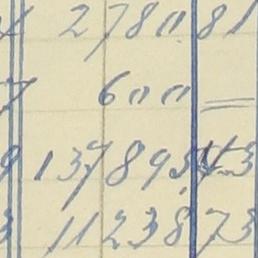 2780 81
7 600 =
9 137895 43
3 11238 73